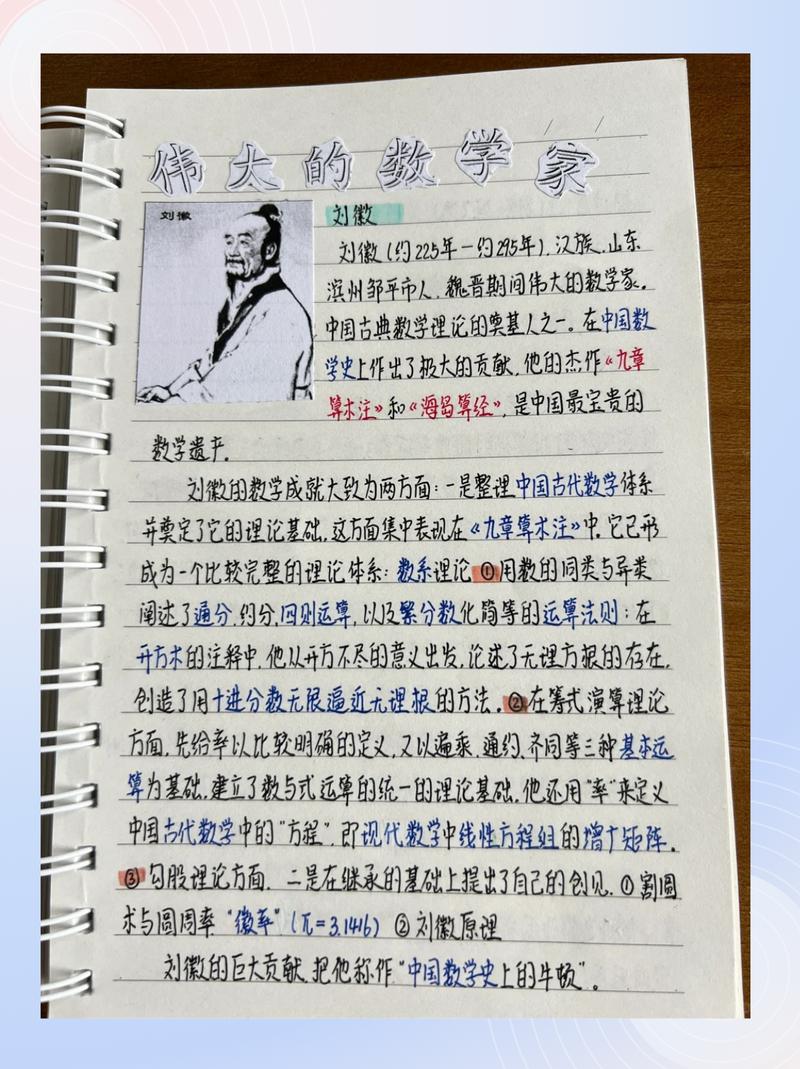 伟大的数学家
刘徽
刘徽
刘徽(约225年-约295年),汉族,山东
滨州邹平市人,魏晋期间伟大的数学家。
中国古典数学理论的奠基人之一。在中国数
学史上作出了极大的贡献,他的杰作《九章
算术注》和《海岛算经》,是中国最宝贵的
数学遗产.
刘徽的数学成就大致为两方面:一是整理中国古代数学体系
并奠定了它的理论基础,这方面集中表现在《九章算术注》中.它已形
成为一个比较完整的理论体系:数系理论①用数的同类与异类
阐述了通分.约分,四则运算,以及繁分数化简等的运算法则:在
开方术的注释中,他从开方不尽的意义出发,论述了无理方根的存在,
创造了用十进分数无限逼近无理根的方法.②在筹式演算理论
方面,先给率以比较明确的定义,又以遍乘、通约、齐同等三种基本运
算为基础,建立了数与式运算的统一的理论基础,他还用"率"来定义
中国古代数学中的"方程",即现代数学中线性方程组的增广矩阵.
③勾股理论方面. 二是在继承的基础上提出了自己的创见.①割圆
求与圆周率"徽率"(π=3.1416) ②刘徽原理
刘徽的巨大贡献,把他称作"中国数学史上的牛顿"。